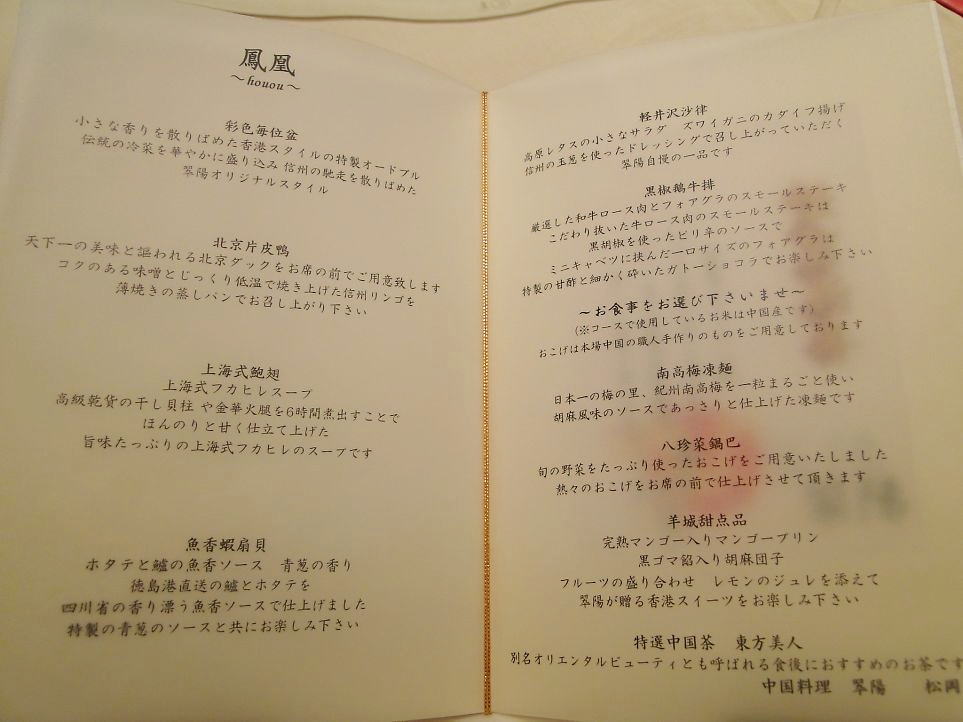 鳳凰
～houou～
彩色毎位盆
小さな香りを散りばめた香港スタイルの特製オードブル
伝統の冷菜を華やかに盛り込み 信州の馳走を散りばめた
翠陽オリジナルスタイル
北京片皮鴨
天下一の美味と謳われる北京ダックをお席の前でご用意致します
コクのある味噌とじっくり低温で焼き上げた信州リンゴを
薄焼きの蒸しパンでお召し上がり下さい
上海式鮑翅
上海式フカヒレスープ
高級乾貨の干し貝柱 や金華火腿を6時間煮出すことで
ほんのりと甘く仕立て上げた
旨味たっぷりの上海式フカヒレのスープです
魚香蝦扇貝
ホタテと鱸の魚香ソース　青葱の香り
徳島港直送の鱸とホタテを
四川省の香り漂う魚香ソースで仕上げました
特製の青葱のソースと共にお楽しみ下さい
軽井沢沙律
高原レタスの小さなサラダ　ズワイガニのカダイフ揚げ
信州の玉葱を使ったドレッシングで召し上がっていただく
翠陽自慢の一品です
黒椒鵝牛排
厳選した和牛ロース肉とフォアグラのスモールステーキ
こだわり抜いた牛ロース肉のスモールステーキは
黒胡椒を使ったピリ辛のソースで
ミニキャベツに挟んだ一口サイズのフォアグラは
特製の甘酢と細かく砕いたガトーショコラでお楽しみ下さい
～お食事をお選び下さいませ～
(※コースで使用しているお米は中国産です)
おこげは本場中国の職人手作りのものをご用意しております
南高梅凍麺
日本一の梅の里、紀州南高梅を一粒まるごと使い
胡麻風味のソースであっさりと仕上げた凍麺です
八珍菜鍋巴
旬の野菜をたっぷり使ったおこげをご用意いたしました
熱々のおこげをお席の前で仕上げさせて頂きます
羊城甜点品
完熟マンゴー入りマンゴープリン
黒ゴマ餡入り胡麻団子
フルーツの盛り合わせ　レモンのジュレを添えて
翠陽が贈る香港スイーツをお楽しみ下さい
特選中国茶　東方美人
別名オリエンタルビューティとも呼ばれる食後におすすめのお茶です
中国料理　翠陽　　松岡